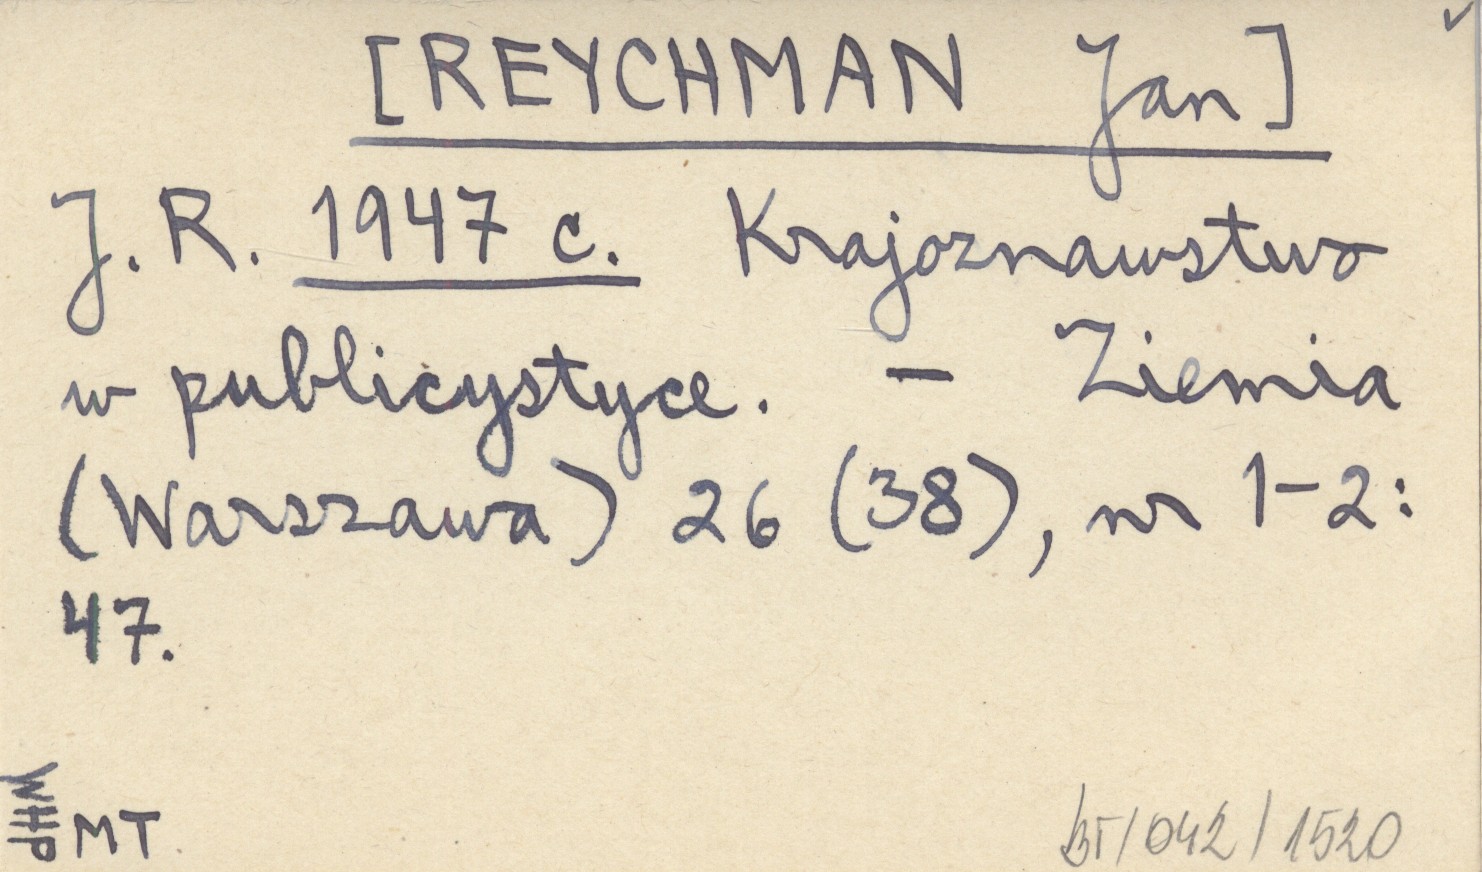 [REYCHMAN Jan]
J. R. 1947 c. Krajoznawstwo
w publicystyce. – Ziemia
(Warszawa) 26 (38), nr 1–2:
47.
WHP MT.
BT/042/1520